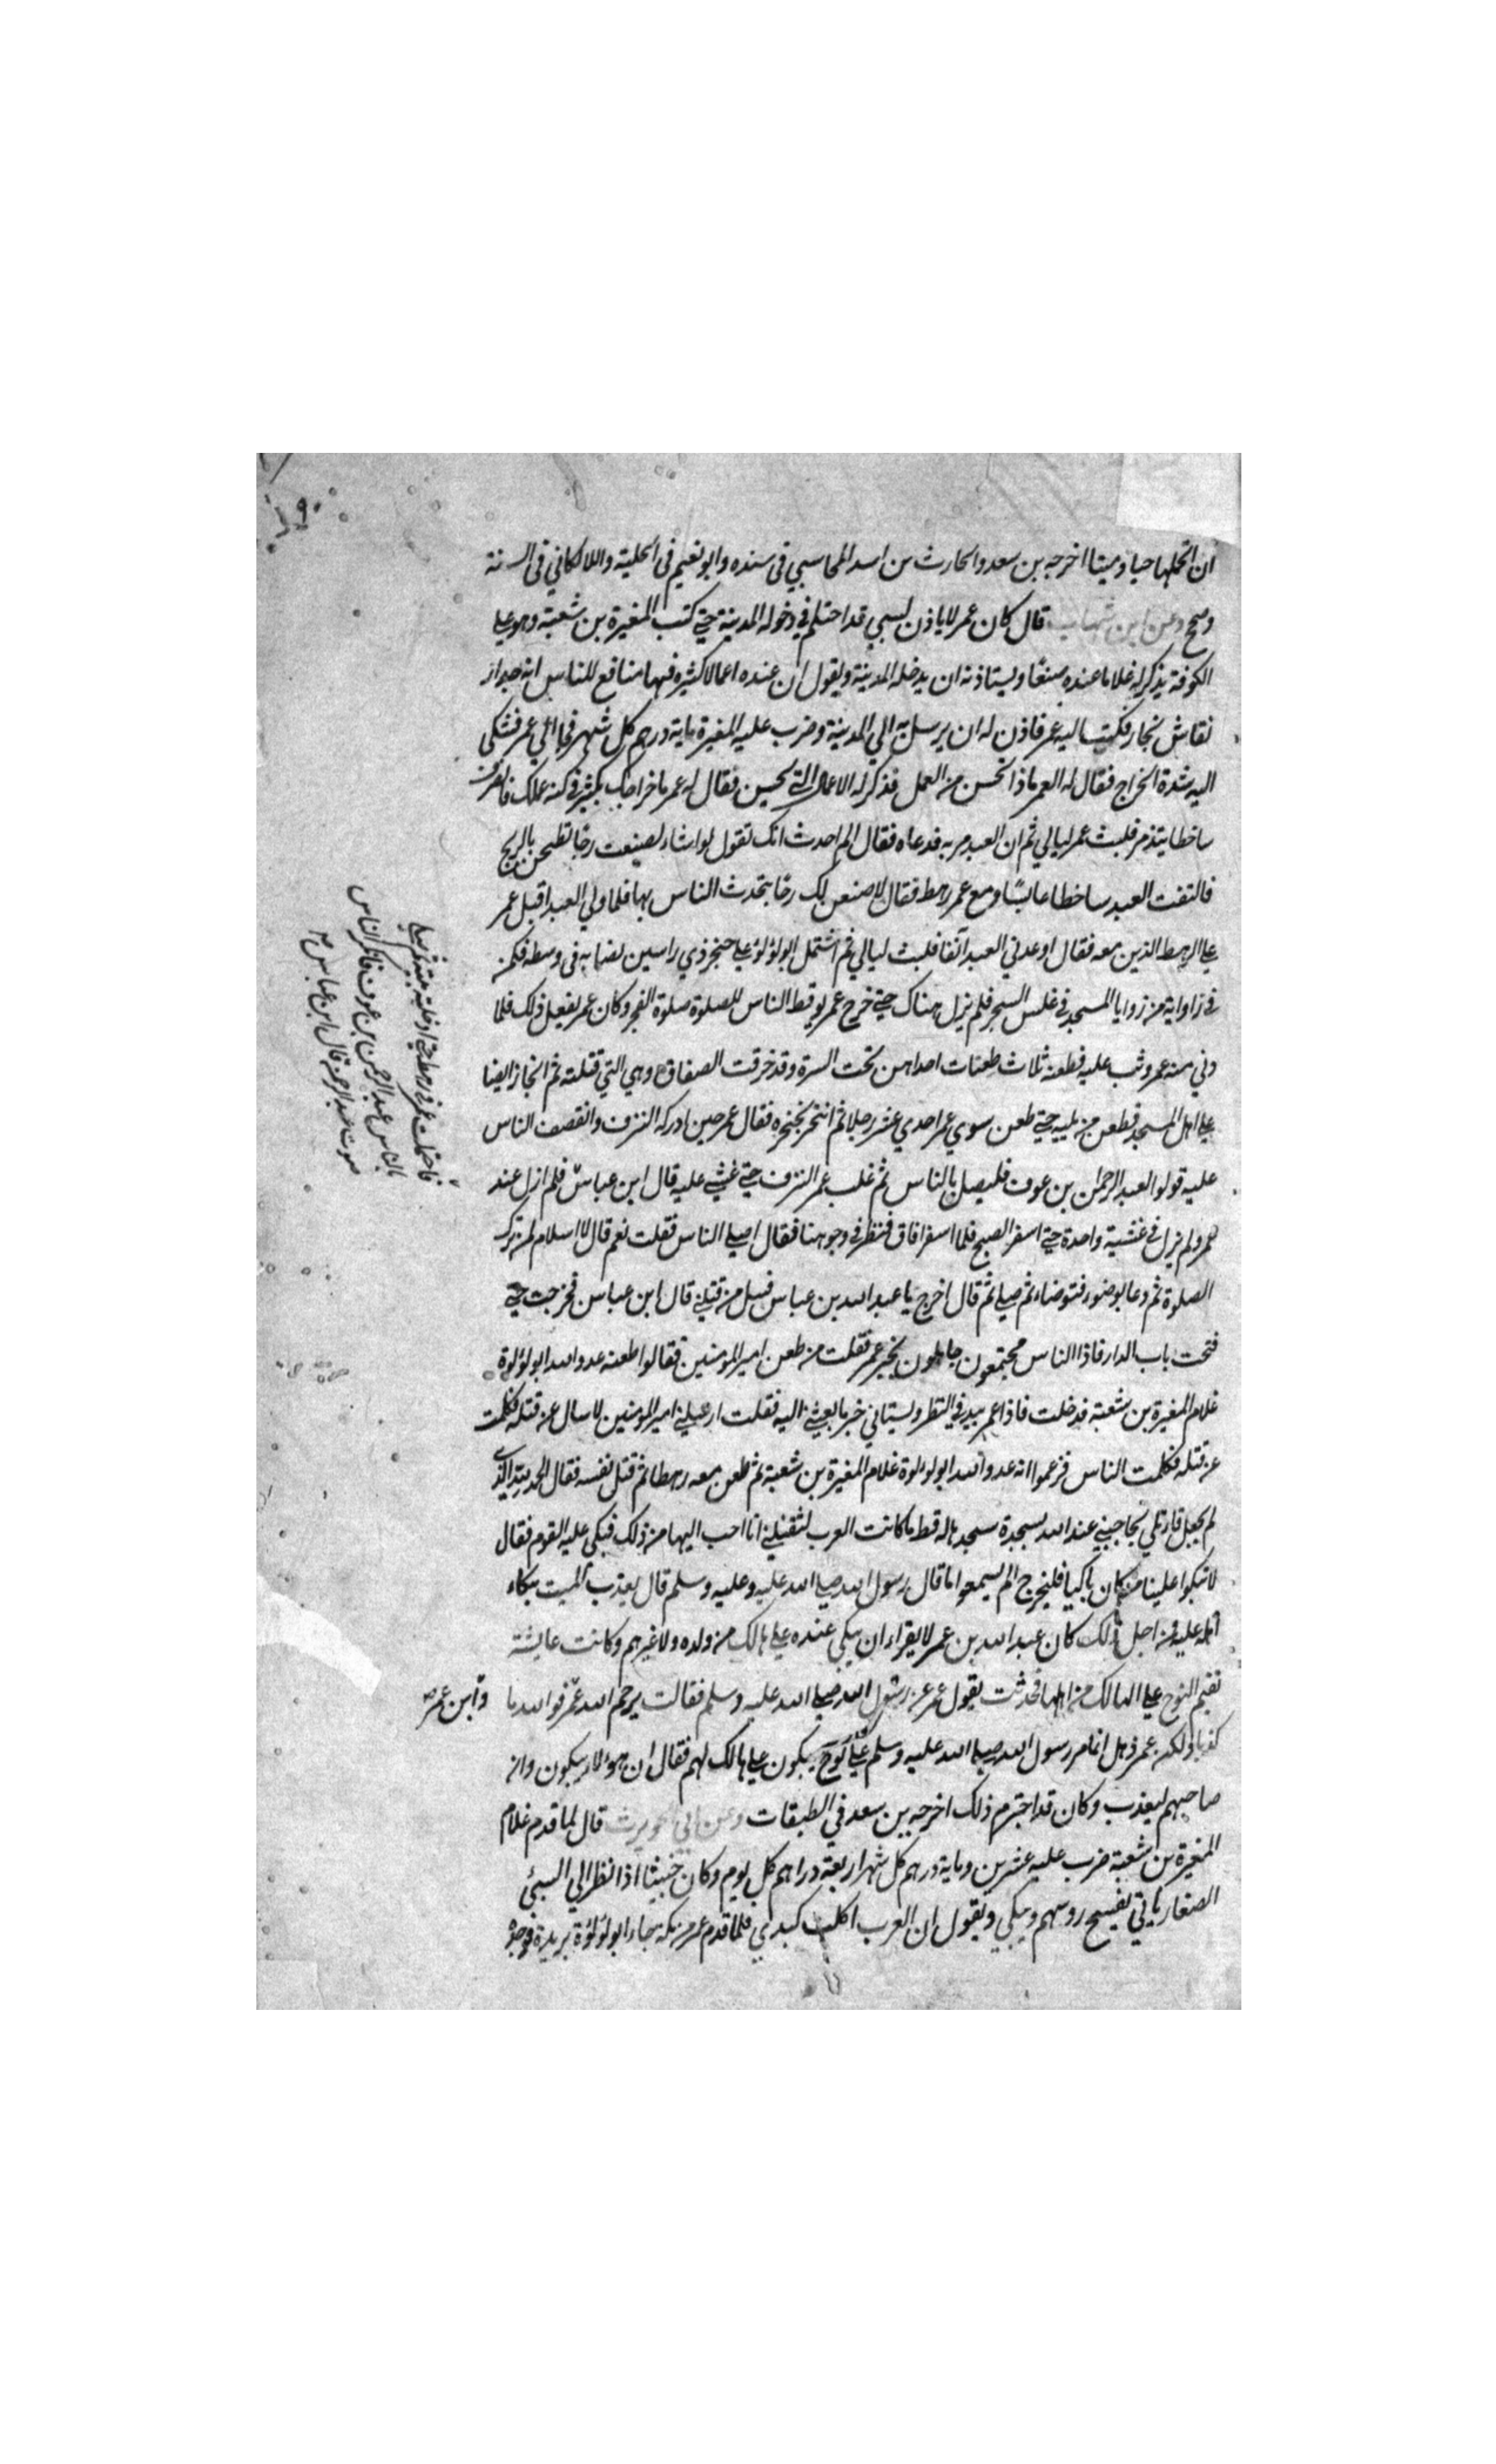 ١٩٠
ان اتحملها حيا وميتا اخرجه بن سعد والحارث بن اسد المحاسبي في سنده وابو نعيم في الحلية واللالكاني في السنة
وصح وعن ابن شهاب قال كان عمر لا ياذن لسبي قد احتلم في دخوله المدينة حتي كتب المغيرة بن شعبة وهو علي
الكوفة يذكر له غلاما عنده صنعًا ويستاذنه ان يدخله المدينة ويقول ان عنده اعمالا كثيره فيها منافع للناس انه حداد
نقاش نجار فكتب اليه عمر فاذن له ان يرسل به الي المدينة وضرب عليه المغيرة ماية درهم كل شهر فجا الي عمر فشكي
اليه شدة الخراج فقال له العمر ماذا تحسن من العمل فذكر له الاعمال التي يحسين فقال له عمر ما خراجك بكثير في كنه عملك فانصرف
ساخطا يتذمر فلبث عمر ليالي ثم ان العبد مر به فدعاه فقال الم احدث انك تقول لو اشاء لصنعت رحًا تطحن بالريح
فالتفت العبد ساخطا عابسًا ومع عمر رهط فقال لاصنعن لك رحًا يتحدث الناس بها فلما ولي العبد اقبل عمر
علي الرهط الذين معه فقال اوعدني العبد آنفا فلبث ليالي ثم اشتمل ابو لؤلؤ علي خنجر ذي راسين نصابه في وسطه فكمن
في زاواية من زوايا المسجد في غلس السحر فلم يزل هناك حتي خرج عمر يوقظ الناس للصلوة صلوة الفجر وكان عمر يفعل ذلك فلما
دني منه عمر وثب عليه فطعنه ثلاث طعنات احداهن تحت السرة وقد خرقت الصفاق وهي التي قتلته ثم انحاز ايضا
علي اهل المسجد فطعن من يليه حتي طعن سوي عمر احدي عشر رجلا ثم انتحر بخنجره فقال عمر حين ادركه النزف وانقصف الناس
عليه قولوا لعبد الرحمن بن عوف فليصل بالناس ثم غلب عمر النزف حتي غشي عليه قال ابن عباس فلم ازل عند
عمر ولم يزل في غشية واحدة حتي اسفر الصبح فلما اسفر افاق فنظر في وجوهنا فقال اصلي الناس فقلت نعم قال لا اسلام لمن ترك
الصلوة ثم دعا بوضوء فتوضاء ثم صلي ثم قال اخرج يا عبد الله بن عباس فسل من قتلني قال ابن عباس فخرجت حتي
فتحت باب الدار فاذا الناس مجتمعون جاهلون بخبر عمر فقلت من طعن امير المومنين فقالوا طعنه عدو الله ابو لؤلوة
غلام المغيرة بن شعبة فدخلت فاذا عمر يبد في النظر ويستاني خبر ما بعثني اليه فقلت ارسلني امير المومنين لاسال عن قتله فكلمت
عن قتله فكلمت الناس فزعموا انه عدو الله ابو لولوة غلام المغيرة بن شعبة ثم طعن معه رهطا ثم قتل نفسه فقال الحمد لله الذي
لم يجعل قاتلي يحاجيني عند الله بسجدة سجدها له قط ما كانت العرب لتقتلني انا احب اليها من ذلك فبكي عليه القوم فقال
لا تبكوا علينا من كان باكيا فليخرج الم يسمعوا ما قال رسول الله صلي الله عليه وعليه وسلم قال يعذب الميت ببكاء
اهله عليه فمن اجل ذلك كان عبد الله بن عمر لا يقراء ان يبكي عنده علي هالك من ولده ولا غيرهم وكانت عايشة
تقيم النوح علي الهالك من اهلها فحدثت بقول عمر عن رسول الله صلي الله عليه وسلم فقالت يرحم الله عمر فوالله ما
وابن عمر صح
كذبا ولكن عمر ذهل انما مر رسول الله صلي الله عليه وسلم علي نوح يبكون علي هالك لهم فقال ان هؤلاء يبكون وان
صاحبهم ليعذب وكان قد اجترم ذلك اخرجه بن سعد في الطبقات وعن ابي الحويرث قال لما قدم غلام
المغيرة بن شعبة ضرب عليه عشرين وماية درهم كل شهر اربعة دراهم كل يوم وكان خبيثا اذا نظر الي السبي
الصغار ياتي يفسح روسهم ويبكي ويقول ان العرب اكلت كبدي فلما قدم عمر من مكة جاء ابو لؤلؤة يريده فوجده
فاحتملت عمر في رهط حتي ادخلته بيته ثم صلي
بالناس عبد الرحمن بن عوف فانكر الناس
صوت عبد الرحمن قال ابن عباس صح